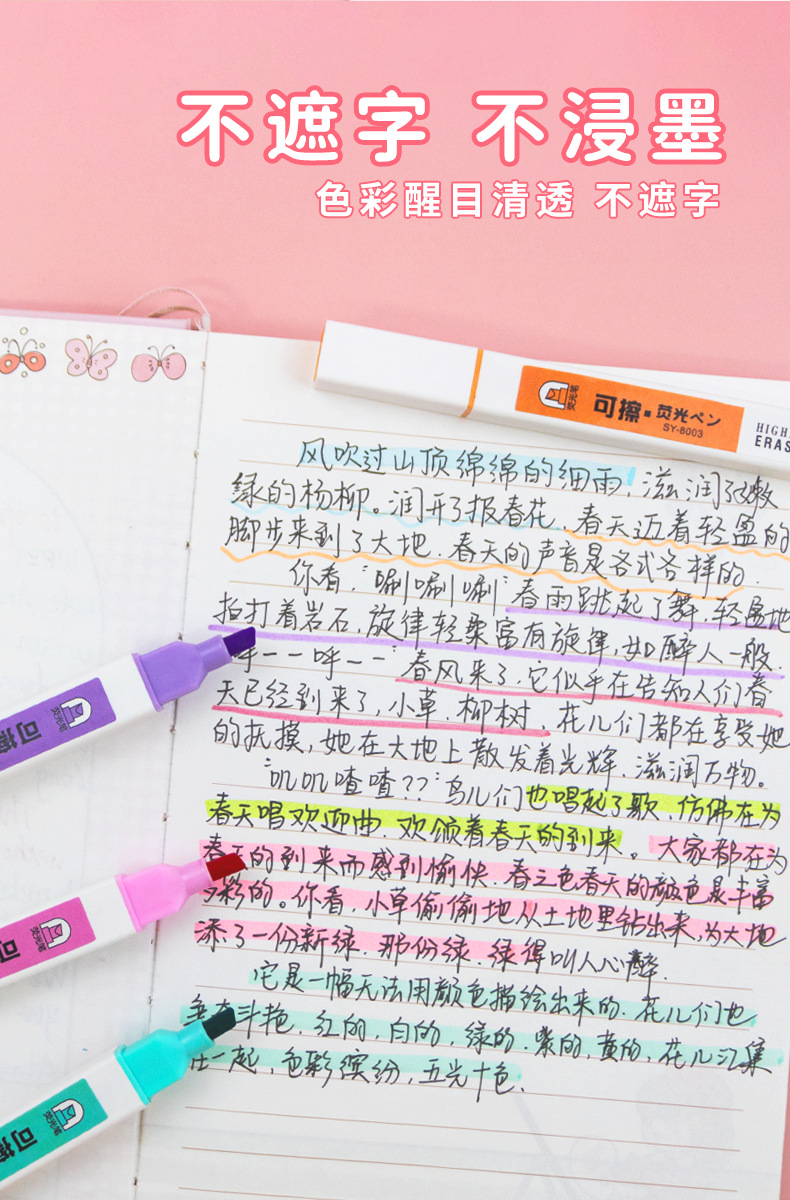 不遮字 不浸墨
色彩醒目清透 不遮字
荧光笔
可擦·荧光ペン
SY-8003
HIGH
ERAS
风吹过山顶绵绵的细雨,滋润了嫩
绿的杨柳。润开了报春花.春天迈着轻盈的
脚步来到了大地.春天的声音是各式各样的.
你看,"唰唰唰"春雨跳起了舞.轻盈地
拍打着岩石,旋律轻柔富有旋律,如醉人一般.
呼一一呼一一"春风来了,它似乎在告知人们春
天已经到来了,小草.柳树、花儿们都在享受她
的抚摸,她在大地上散发着光辉.滋润万物。
"叽叽喳喳??"鸟儿们也唱起了歌,仿佛在为
春天唱欢迎曲.欢颂着春天的到来。大家都在为
春天的到来而感到愉快.春三色春天的颜色是丰富
多彩的。你看,小草偷偷地从土地里钻出来,为大地
添了一份新绿.那份绿.绿得叫人心醉.
它是一幅无法用颜色描绘出来的.花儿们也
争奇斗艳,红的,白的,绿的.紫的,黄的,花儿汇集
在一起,色彩缤纷,五光十色.
荧光笔
可擦
荧光笔
可
荧光笔
可擦